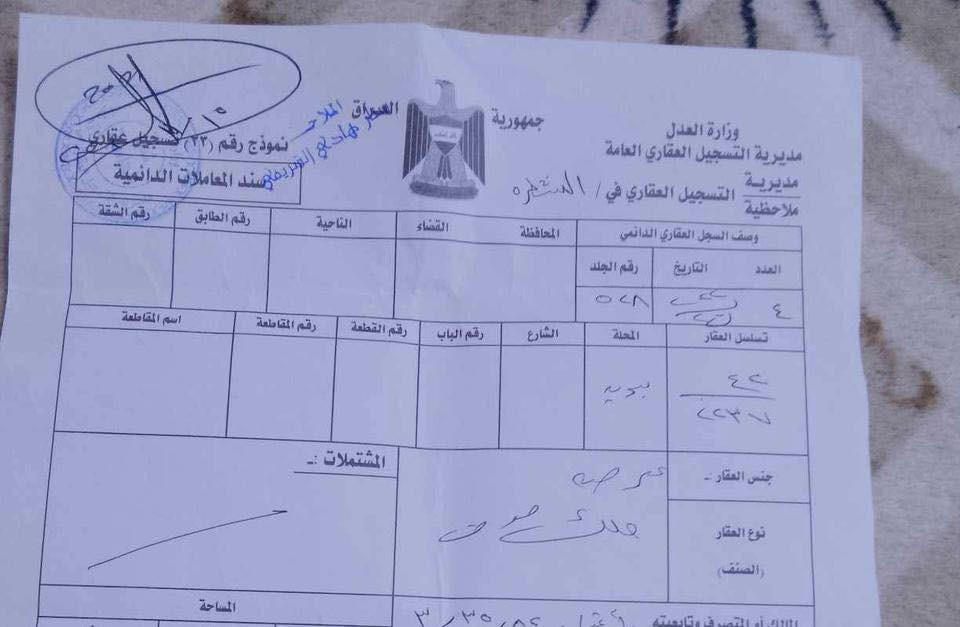 جمهورية العراق
وزارة العدل
مديرية التسجيل العقاري العامة
مديرية
ملاحظية
التسجيل العقاري في / الشطره
نموذج رقم (٢٣) تسجيل عقاري
سند المعاملات الدائمية
وصف السجل العقاري الدائمي
المحافظة القضاء الناحية رقم الطابق رقم الشقة
العدد التاريخ رقم الجلد
٤ ٥٢٨
تسلسل العقار المحلة الشارع رقم الباب رقم القطعة رقم المقاطعة اسم المقاطعة
٤٢
٢٢٣٧
جنس العقار :ـ
المشتملات :ـ
نوع العقار ملك صرف
(الصنف)
المالك أو المتصرف وتابعيته
المساحة